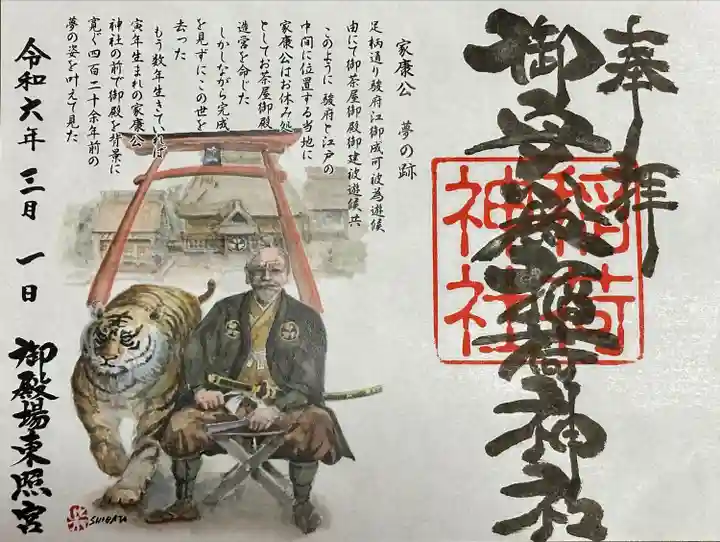 奉拝
御
稲荷神社
稲荷
神社
家康公　夢の跡
足柄通り駿府江御成可被為遊候
由にて御茶屋御殿御建被遊候共
このように駿府と江戸の
中間に位置する当地に
家康公はお休み処
としてお茶屋御殿
造営を命じた
しかしながら完成
を見ずにこの世を
去った
もう数年生きていれば
寅年生まれの家康公
神社の前で御殿を背景に
寛ぐ四百二十余年前の
夢の姿を叶えて見た
令和六年 三月 一日
御殿場東照宮
SHIBATA